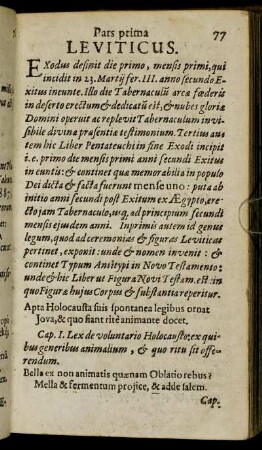 Pars prima 77
LEVITICUS.
EXodus desinit die primo, mensis primi, qui
incidit in 23. Martij fer. III. anno secundo E-
xitus ineunte. Illo die Tabernaculũ arca fœderis
in deserto erectum & dedicatũ est, & nubes gloriæ
Domini operuit ac replevit Tabernaculum invi-
sibile divinæ præsentiæ testimonium. Tertius au-
tem hic Liber Pentateuchi in fine Exodi incipit
i. e. primo die mensis primi anni secundi Exitus
in euntis: & continet quæ memorabilia in populo
Dei dicta & facta fuerunt mense uno: puta ab
initio anni secundi post Exitum ex Ægypto, ere-
cto jam Tabernaculo, usq, ad principium secundi
mensis ejusdem anni. Inprimis autem id genus
legum, quod ad ceremonias & figuras Leviticas
pertinet, exponit: unde & nomen invenit: &
continet Typum Anitypi in Novo Testamento:
unde & hic Liber ut Figura Novi Testam. est: in
quo Figuræ hujus Corpus & substantia reperitur.
Apta Holocausta suis spontanea legibus ornat
Jova, & quo fiant ritè animante docet.
Cap. I. Lex de voluntario Holocausto: ex qui-
bus generibus animalium, & quo ritu sit offe-
rendum.
Bella ex non animatis quænam Oblatio rebus?
Mella & fermentum projice, & adde salem.
Cap.